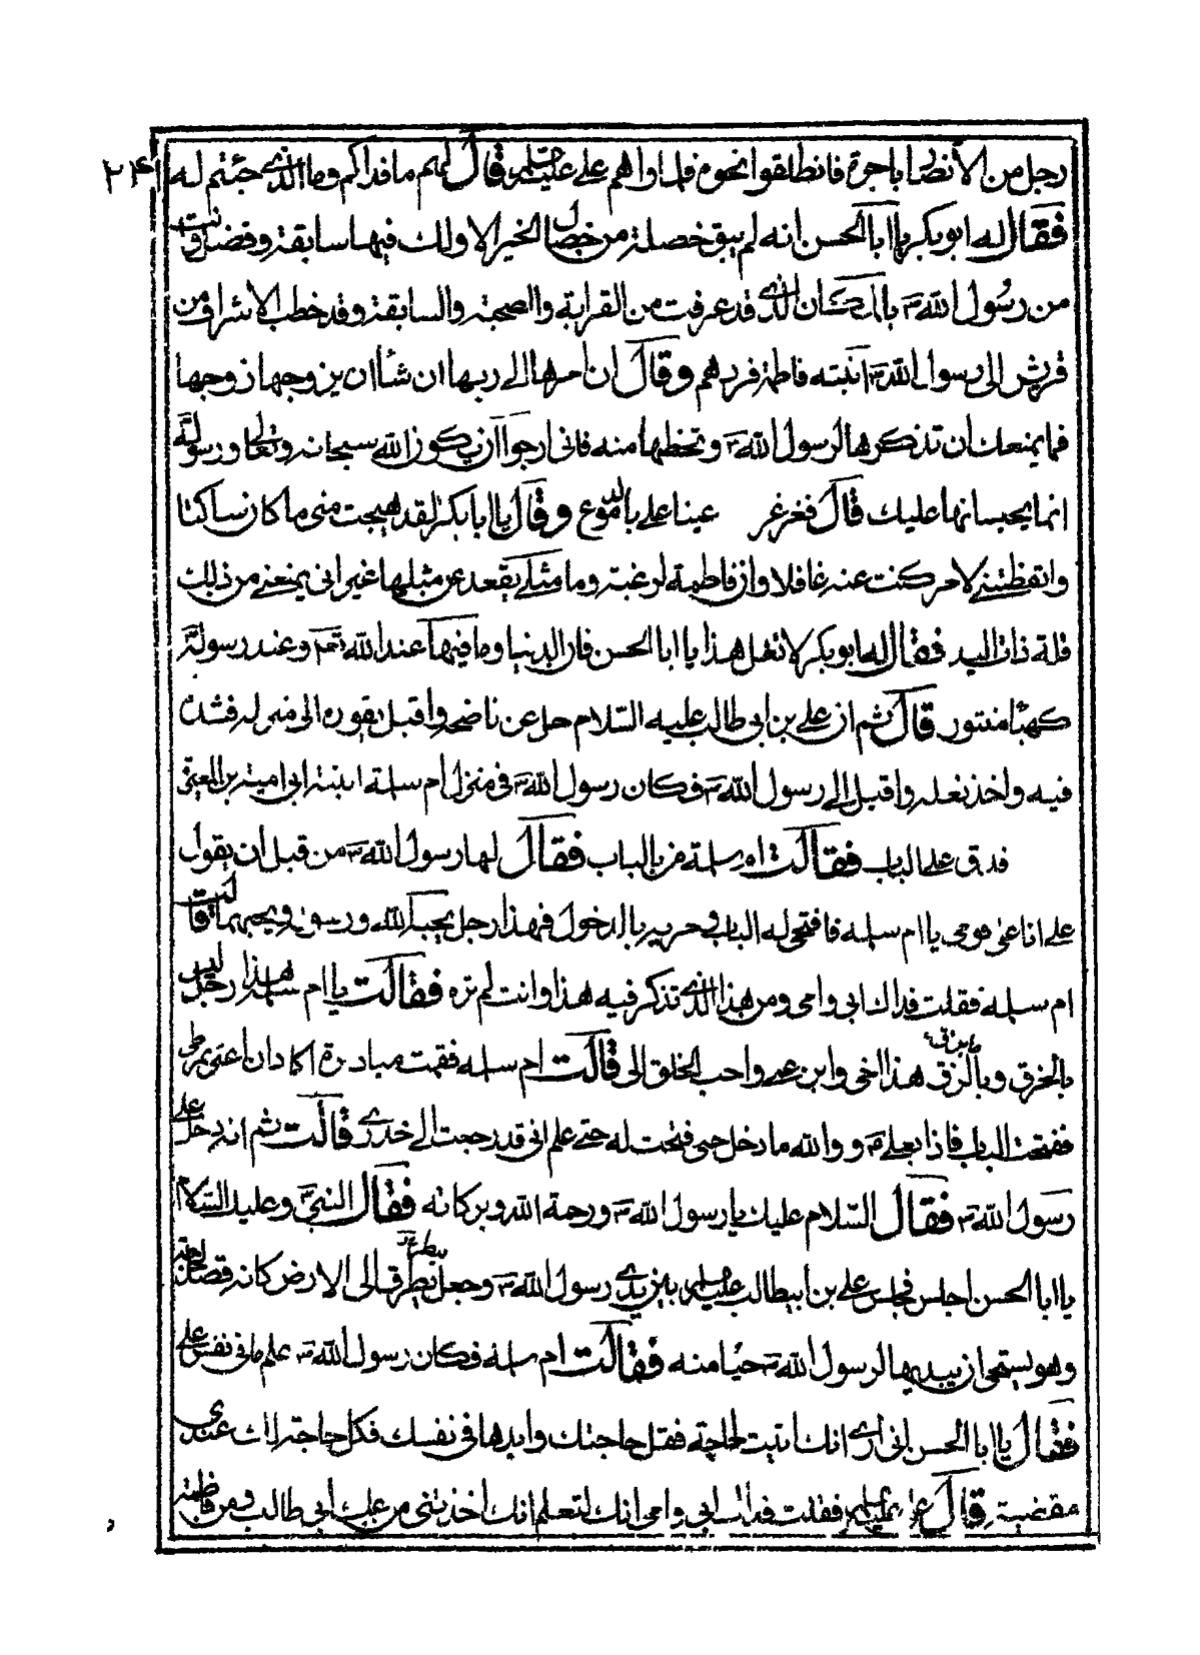 ٢٤١
رجل من الأنصار باجرة فانطلقوا نحوه فلما راهم علي عليه السلام قال لهم ما فداكم وما الذي جئتم له
فقال له ابو بكر يا ابا الحسن انه لم يبق خصلة من خصال الخير الا ولك فيها سابقة وفضل وانت
من رسول الله ص بالمكان الذي قد عرفت من القرابة والصحبة والسابقة وقد خطب الاشراف من
قريش الى رسول الله ص ابنته فاطمة فردهم وقال ان امرها الى ربها ان شاء ان يزوجها زوجها
فما يمنعك ان تذكرها لرسول الله ص وتخطبها منه فانى ارجوا ان يكون الله سبحانه وتعالى ورسوله
انما يحبسانها عليك قال فغرغر عينا علي بالدموع وقال يا ابا بكر لقد هيجت منى ما كان ساكنا
وايقظتني لامر كنت عنه غافلا وان فاطمة لرغبة وما مثلي يقعد عن مثلها غير انى يمنعنے من ذلك
قلة ذات اليد فقال له ابو بكر لا تقل هذا يا ابا الحسن فان الدنيا وما فيها عند الله تعم وعند رسوله
كهباء منثور قال ثم ان علي بن ابى طالب عليه السلام حل عن ناضحه واقبل يقوده الى منزله فشده
فيه واخذ نعله واقبل الى رسول الله ص فكان رسول الله ص فى منزل ام سلمة ابنة ابى امية بن المغيرة
فدق علي الباب فقالت ام سلمة من بالباب فقال لها رسول الله ص من قبل ان يقول
علي انا على قومى يا ام سلمه فافتحى له الباب و مريه بالدخول فهذا رجل يحبه الله ورسوله ويحبهما قالت
ام سلمة فقلت فداك ابى وامى ومن هذا الذي تذكر فيه هذا وانت لم تره فقالت يا ام سلمه هذا رجل ليس
بالخرق وبالنزق هذا اخى وابن عمي واحب الخلق الى قالت ام سلمه فقمت مبادرة اكاد ان اعثر بمرطى
ففتحت الباب فاذا بعلي ص و والله ما دخل حين فتحت له حتے علم انى قد رجعت الى خدرے قالت ثم انه دخل على
رسول الله ص فقال السلام عليك يا رسول الله ص ورحمة الله وبركاته فقال النبي وعليك السلام
يا ابا الحسن اجلس فجلس علي بن ابيطالب عليه السلام بين يدي رسول الله ص وجعل يطرق الى الارض كانه قصد لحاجة
وهو يستحى ان يبديها لرسول الله ص حياء منه فقالت ام سلمه فكان رسول الله ص علم ما فى نفس علي
فقال يا ابا الحسن انى ارى انك اتيت لحاجة فقل حاجتك وابدها فى نفسك فكل حاجة لك عندى
مقضية قال علي عليه السلام فقلت فداك ابى وامى انك لتعلم انك اخذتنى من عمك ابى طالب ومن فاطمة